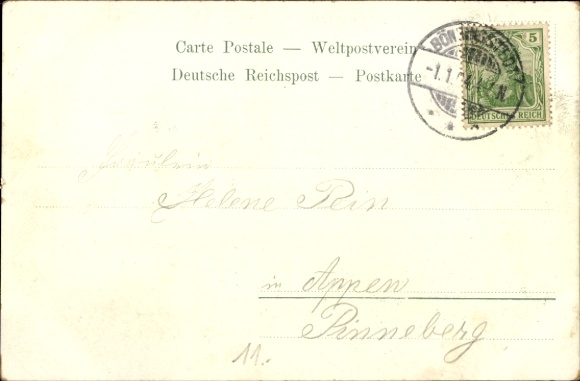 Carte Postale — Weltpostverein
Deutsche Reichspost — Postkarte
5
DEUTSCHES REICH
-1.1.04
N
Fräulein
Helene Rein
in Appen
Pinneberg
11.